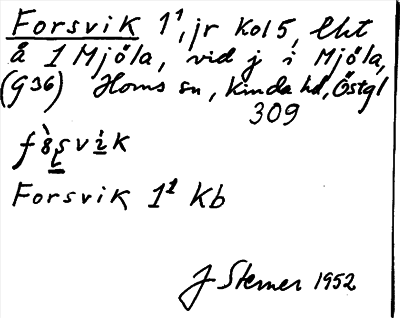 Forsvik 1¹, jr Kol 5, lht
å 1 Mjöla, vid j i Mjöla,
(G36) Horns sn, Kinda hd, Östgl
309
Forsvik 1¹ Kb
J Sterner 1952